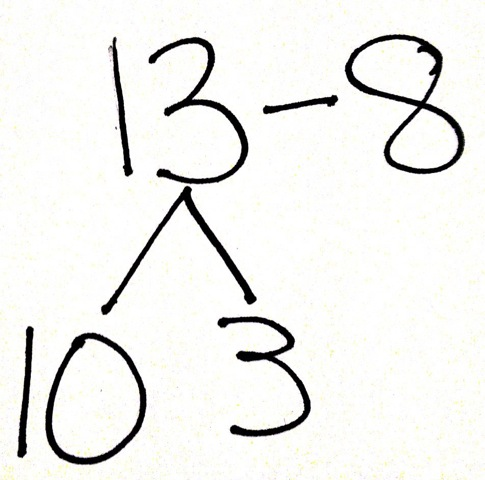 13 - 8
10 3